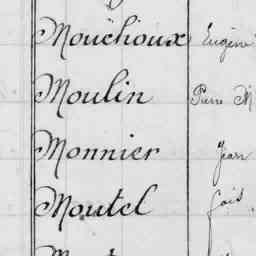 Mouchoux Eugène
Moulin Pierre M
Monnier Jean
Moutel